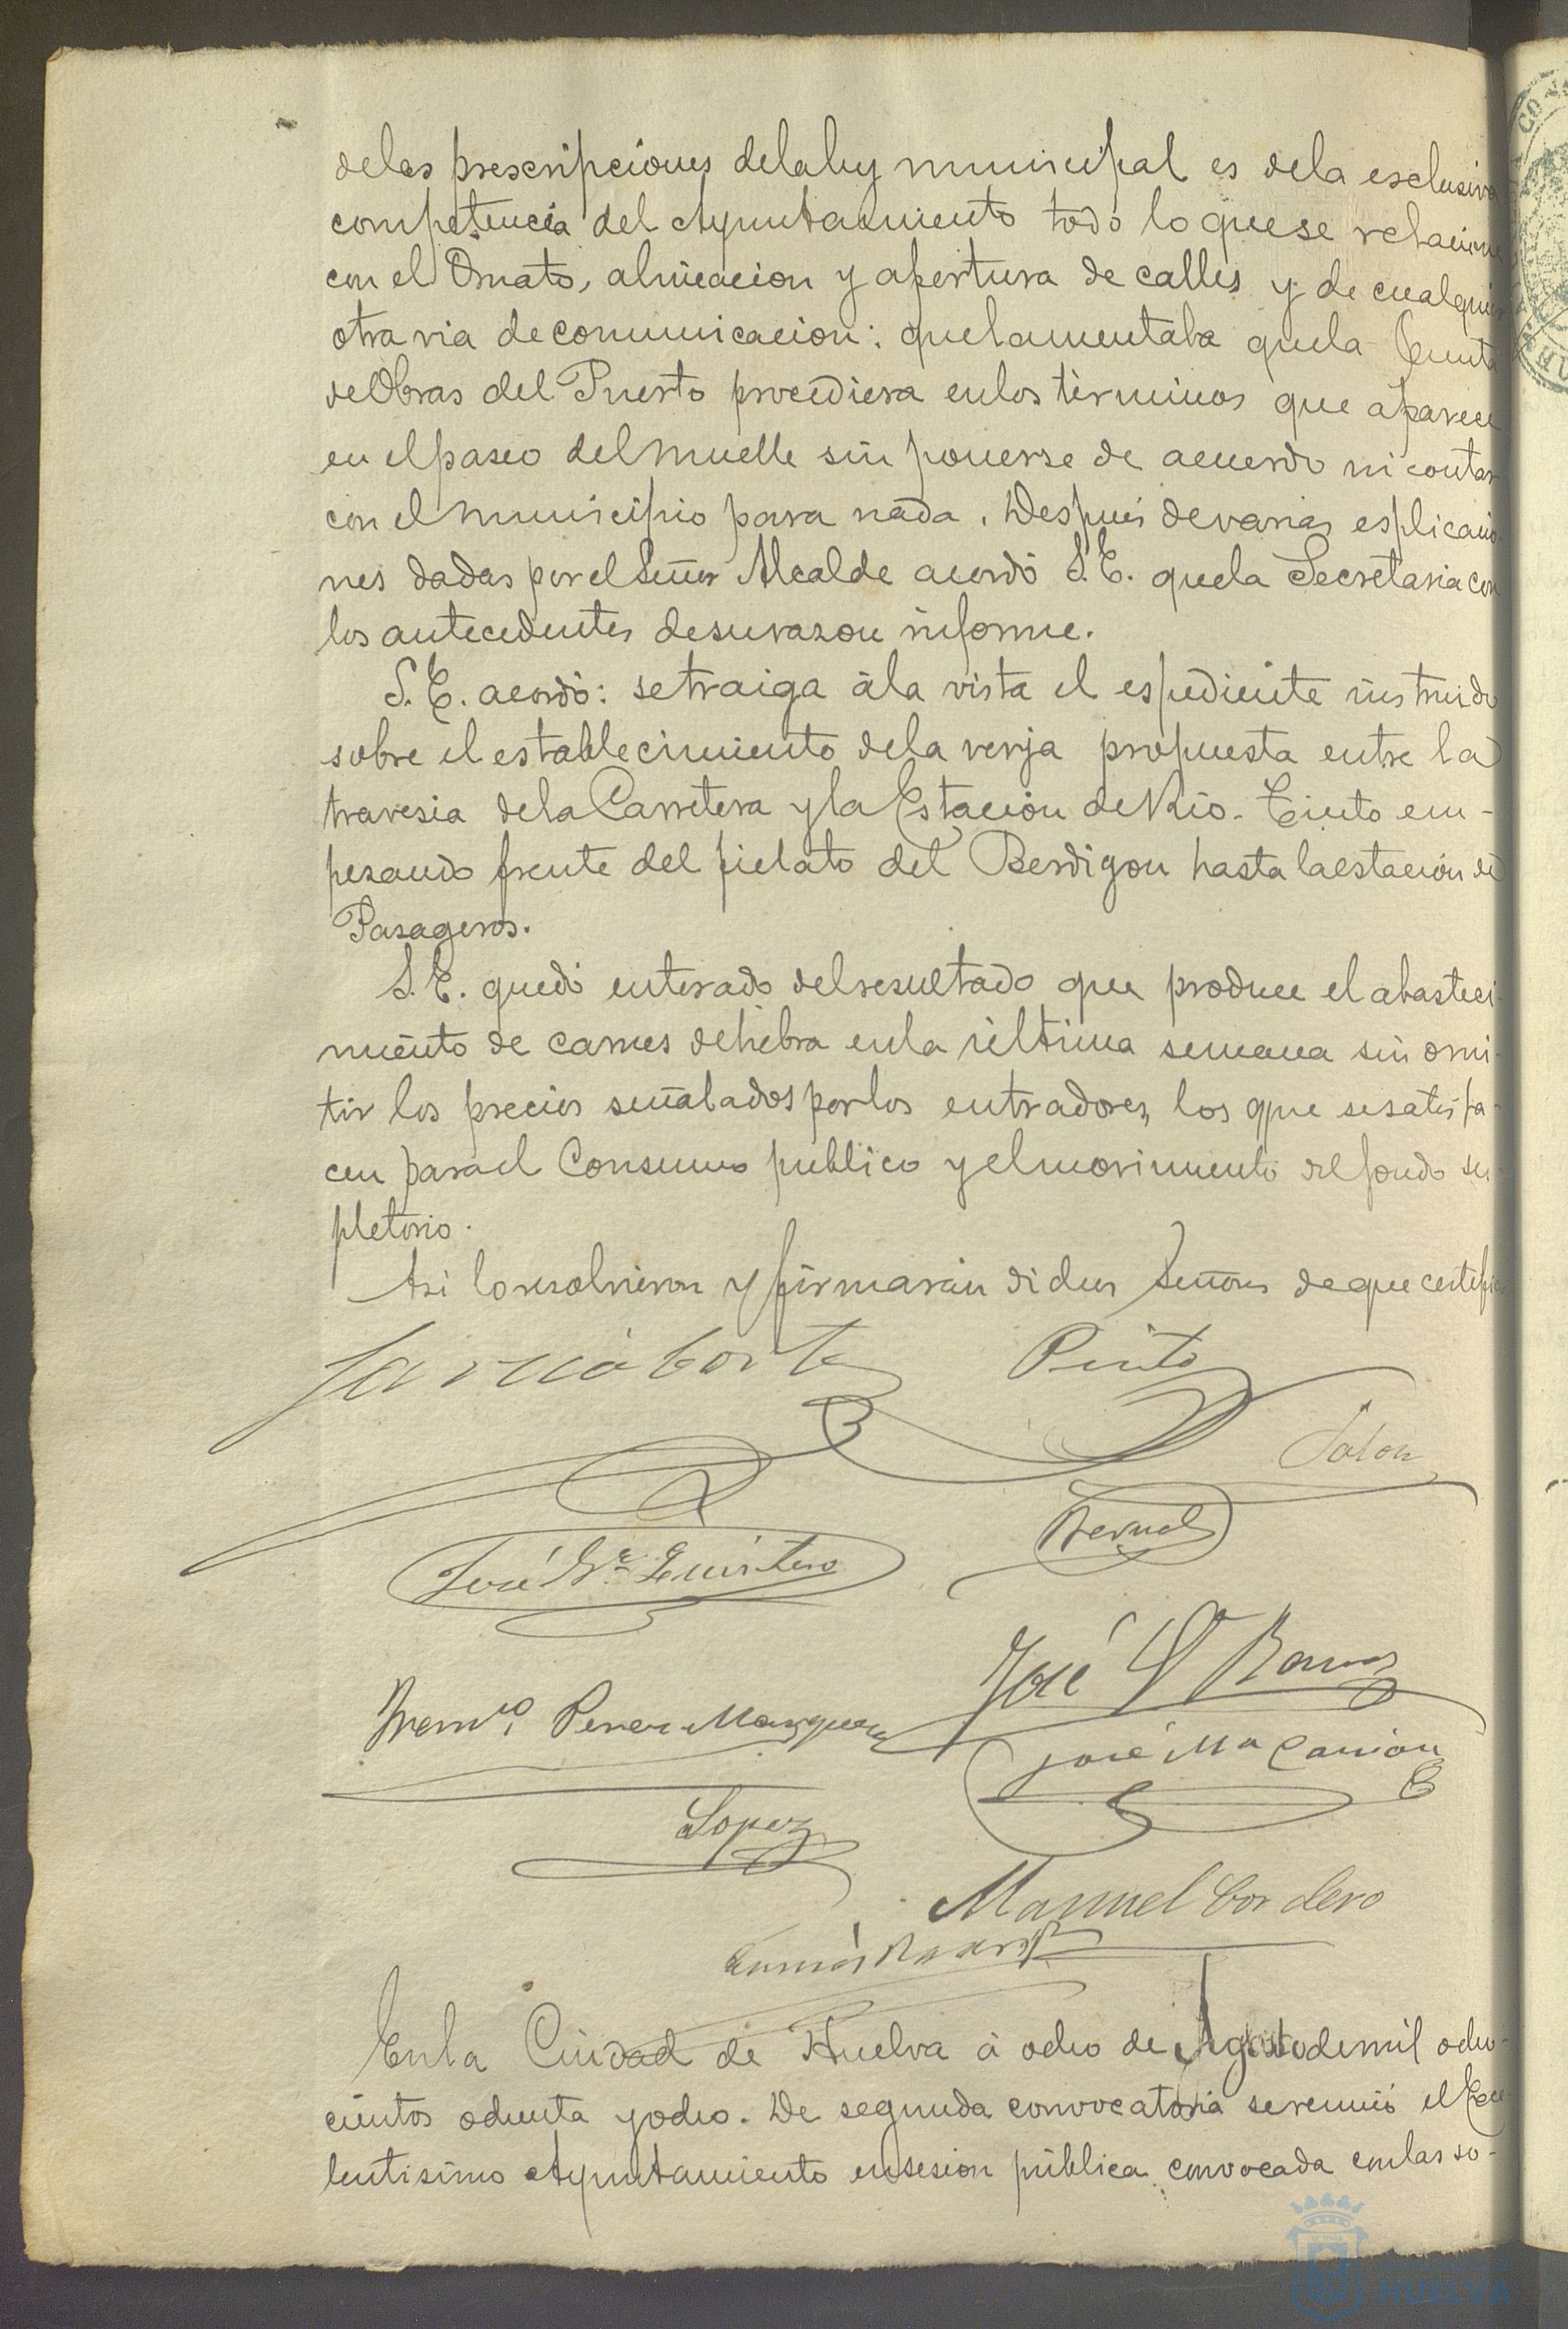 delas prescripciones dela ley municipal es dela esclusiva
competencia del Ayuntamiento todo lo que se relacione
con el Ornato, alineacion y apertura de calles y de cualquier
otra via de comunicacion: que lamentaba que la Junta
de Obras del Puerto procediera en los términos que aparece
en el paseo del muelle sin ponerse de acuerdo ni contar
con el municipio para nada. Después de varias esplicacio-
nes dadas por el Señor Alcalde acordó S.E. que la Secretaria con
los antecedentes de su razon informe.
S.E. acordó: se traiga á la vista el espediente instruido
sobre el establecimiento de la verja propuesta entre la
travesia de la Carretera y la Estación de Rio-Tinto em-
pezando frente del fielato del Berdigon hasta la estación de
Pasageros.
S.E. quedó enterado del resultado que produce el abasteci-
miento de carnes de hebra en la última semana sin omi-
tir los precios señalados por los entradores, los que se satisfa-
cen para el Consumo publico y el movimiento del fondo su-
pletorio.
Asi lo resolvieron y firmarán dichos Señores de que certifico
Garcia Cortes Pinto
Jalon
José Gr. Quintero Bernal
José D Ramos
Franco. Perez Marquez
José Ma Carrion
Lopez
Manuel Cordero
Tomás
En la Ciudad de Huelva á ocho de Agosto de mil ocho-
cientos ochenta y ocho. De segunda convocatoria se reunió el Exce-
lentisimo Ayuntamiento en sesion pública convocada con las so-
HUELVA